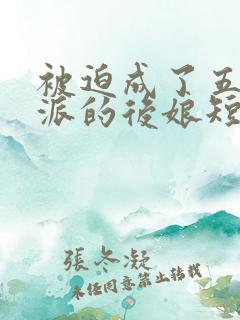 被迫成了五
派的後娘短
張冬凝
未任同意禁止转载